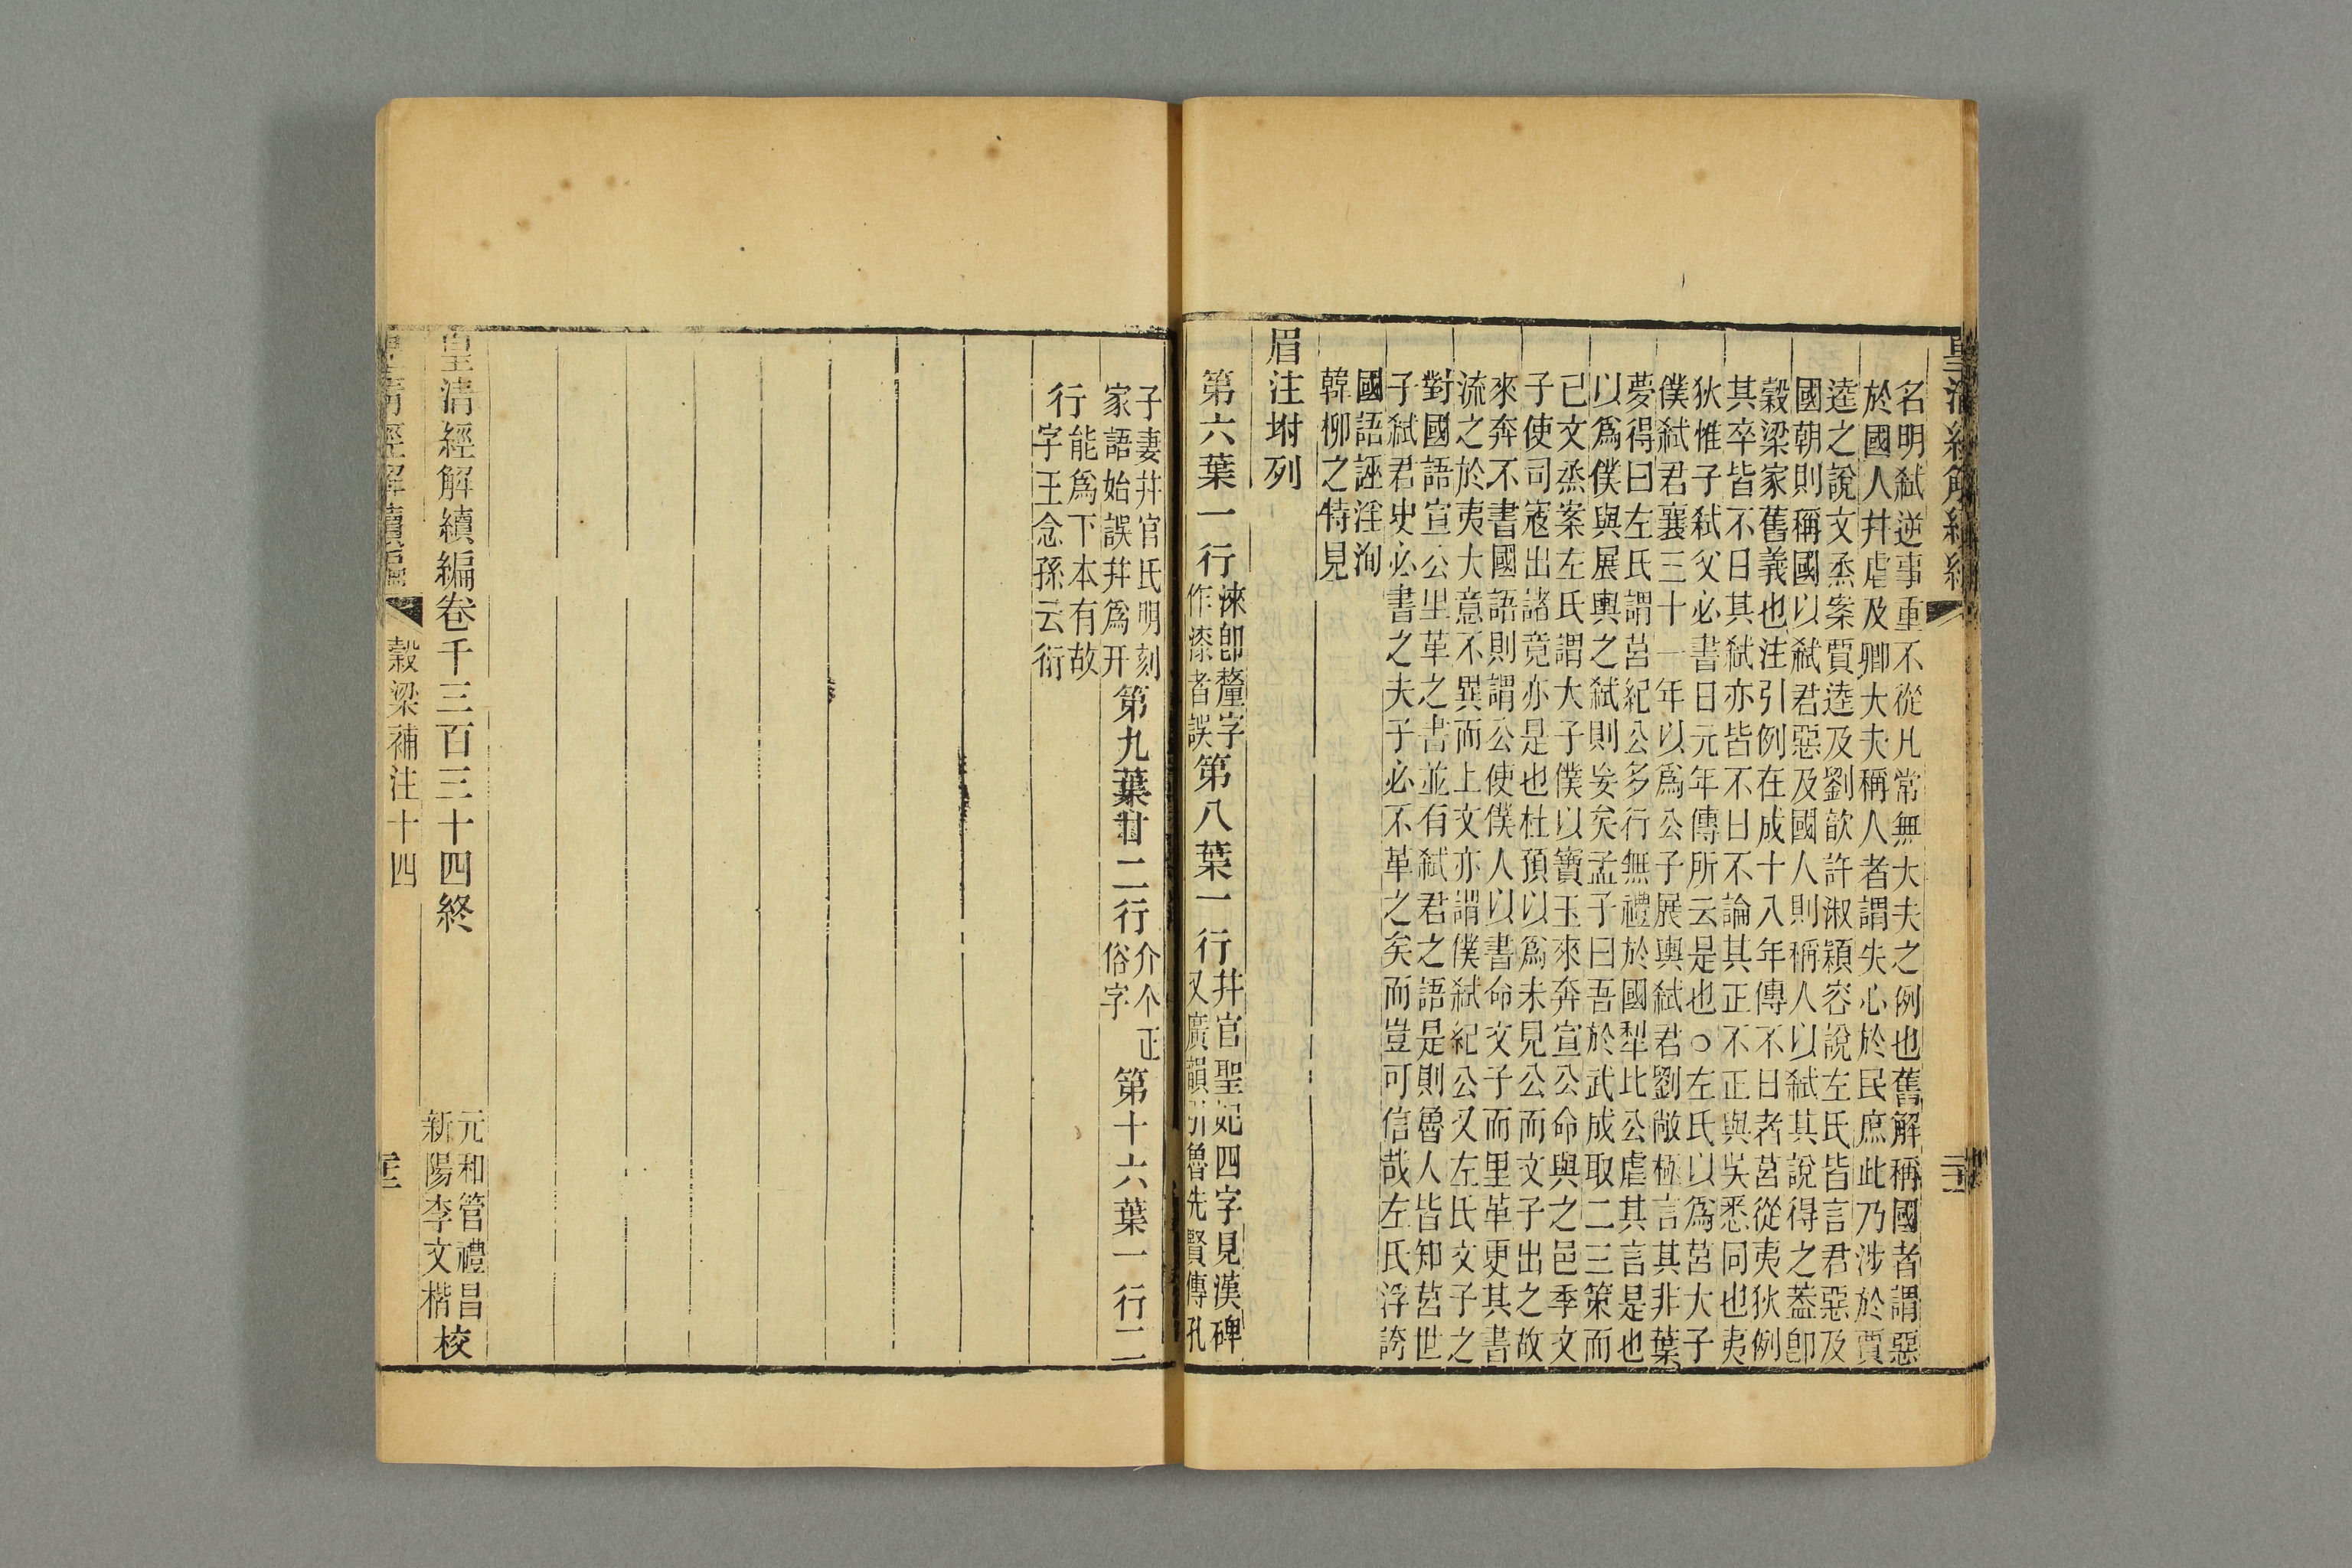 皇清經解續編
名明弑逆事重不從凡常無大夫之例也舊解稱國者謂惡
於國人幷虐及卿大夫稱人者謂失心於民庶此乃涉於賈
逵之說文烝案賈逵及劉歆許淑穎容說左氏皆言君惡及
國朝則稱國以弑君惡及國人則稱人以弑其說得之葢卽
穀梁家舊義也注引例在成十八年傳不日者莒從夷狄例
其卒皆不日其弑亦皆不日不論其正不正與吳悉同也夷
狄惟子弑父必書日元年傳所云是也○左氏以爲莒大子
僕弑君襄三十一年以爲公子展輿弑君劉敞極言其非葉
夢得曰左氏謂莒紀公多行無禮於國犁比公虐其言是也
以爲僕與展輿之弑則妄矣孟子曰吾於武成取二三策而
已文烝案左氏謂大子僕以寶玉來奔宣公命與之邑季文
子使司寇出諸竟亦是也杜預以爲未見公而文子出之故
來奔不書國語則謂公使僕人以書命文子而里革更其書
流之於夷大意不異而上文亦謂僕弑紀公又左氏文子之
對國語宣公里革之書並有弑君之語是則魯人皆知莒世
子弑君史必書之夫子必不革之矣而豈可信哉左氏浮誇
國語誣淫洵
韓柳之特見
眉注坿列
第六葉一行淶卽釐字
作漆者誤第八葉一行幷官聖妃四字見漢碑
又廣韻引魯先賢傳孔
子妻幷官氏明刻
家語始誤幷爲开第九葉廿二行介个正
俗字第十六葉一行二
行能爲下本有故
字王念孫云衍
皇淸經解續編卷千三百三十四終
元和管禮昌
新陽李文楷校
皇淸經解續編
穀梁補注十四